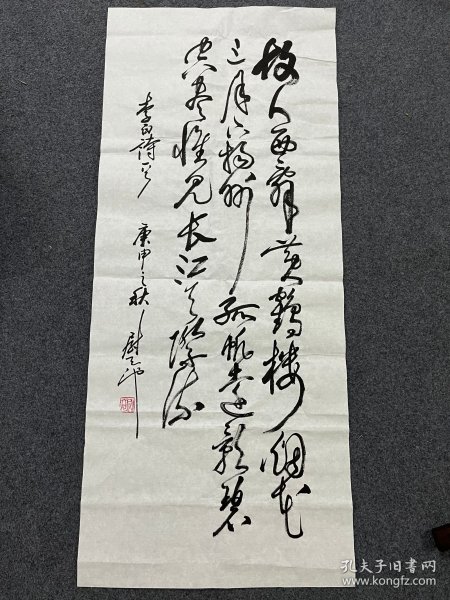 故人西辞黄鹤楼烟花
三月下扬州孤帆远影碧
空尽惟见长江天际流
李白诗一首
庚申之秋
孔夫子旧书网
www.kongfz.com